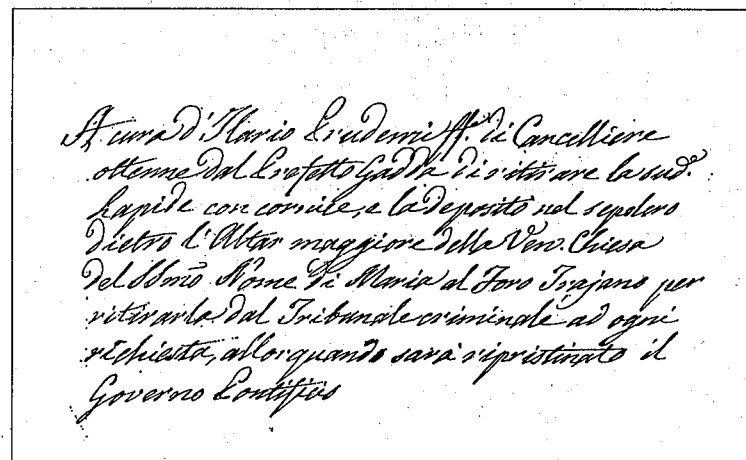 A cura d'Ilario Prudenzi ff. di Cancelliere
ottenne dal Prefetto Gadda di ritirare la sud.ª
Lapide con cornice, e la depositò nel sepolcro
dietro l'Altar maggiore della Ven. Chiesa
del SSmo Nome di Maria al Foro Trajano per
ritirarla dal Tribunale criminale ad ogni
richiesta, allorquando sarà ripristinato il
Governo Pontificio